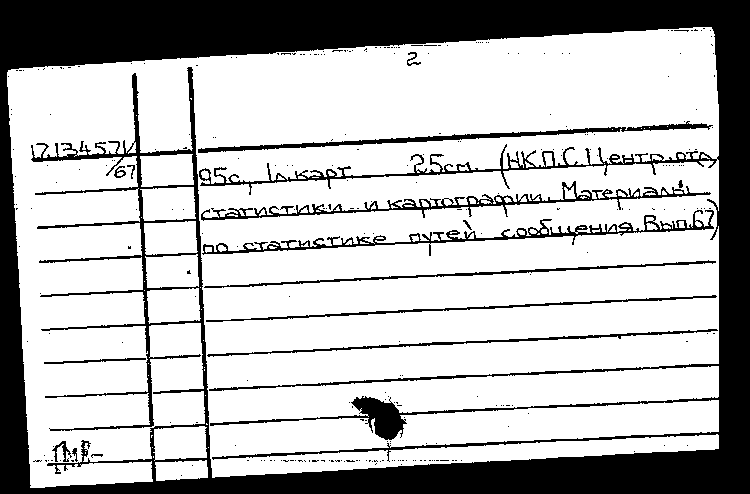 2
17.134571/
/67
95с., 1л.карт 25см. (НКПС. Центр.отд.
статистики и картографии. Материалы
по статистике путей сообщения. Вып.67)